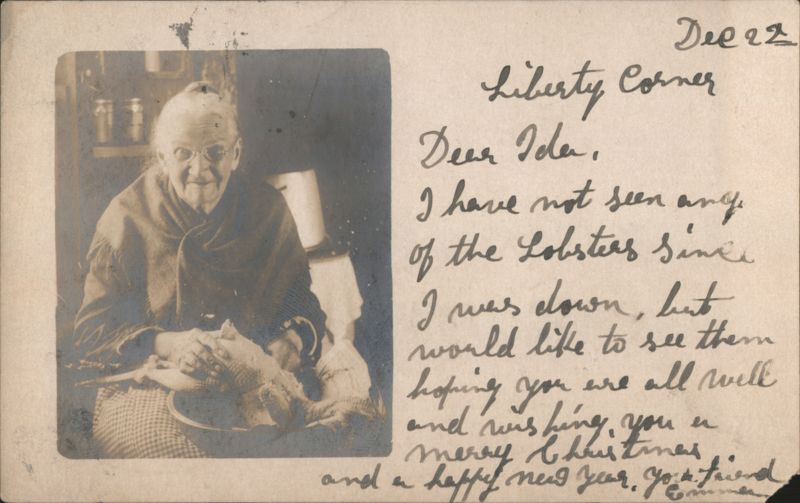 Dec 22
Liberty Corner
Dear Ida,
I have not seen any
of the Lobsters since
I was down, but
would like to see them
hoping you are all well
and wishing you a
merry Christmas
and a happy new year, your friend
Emma